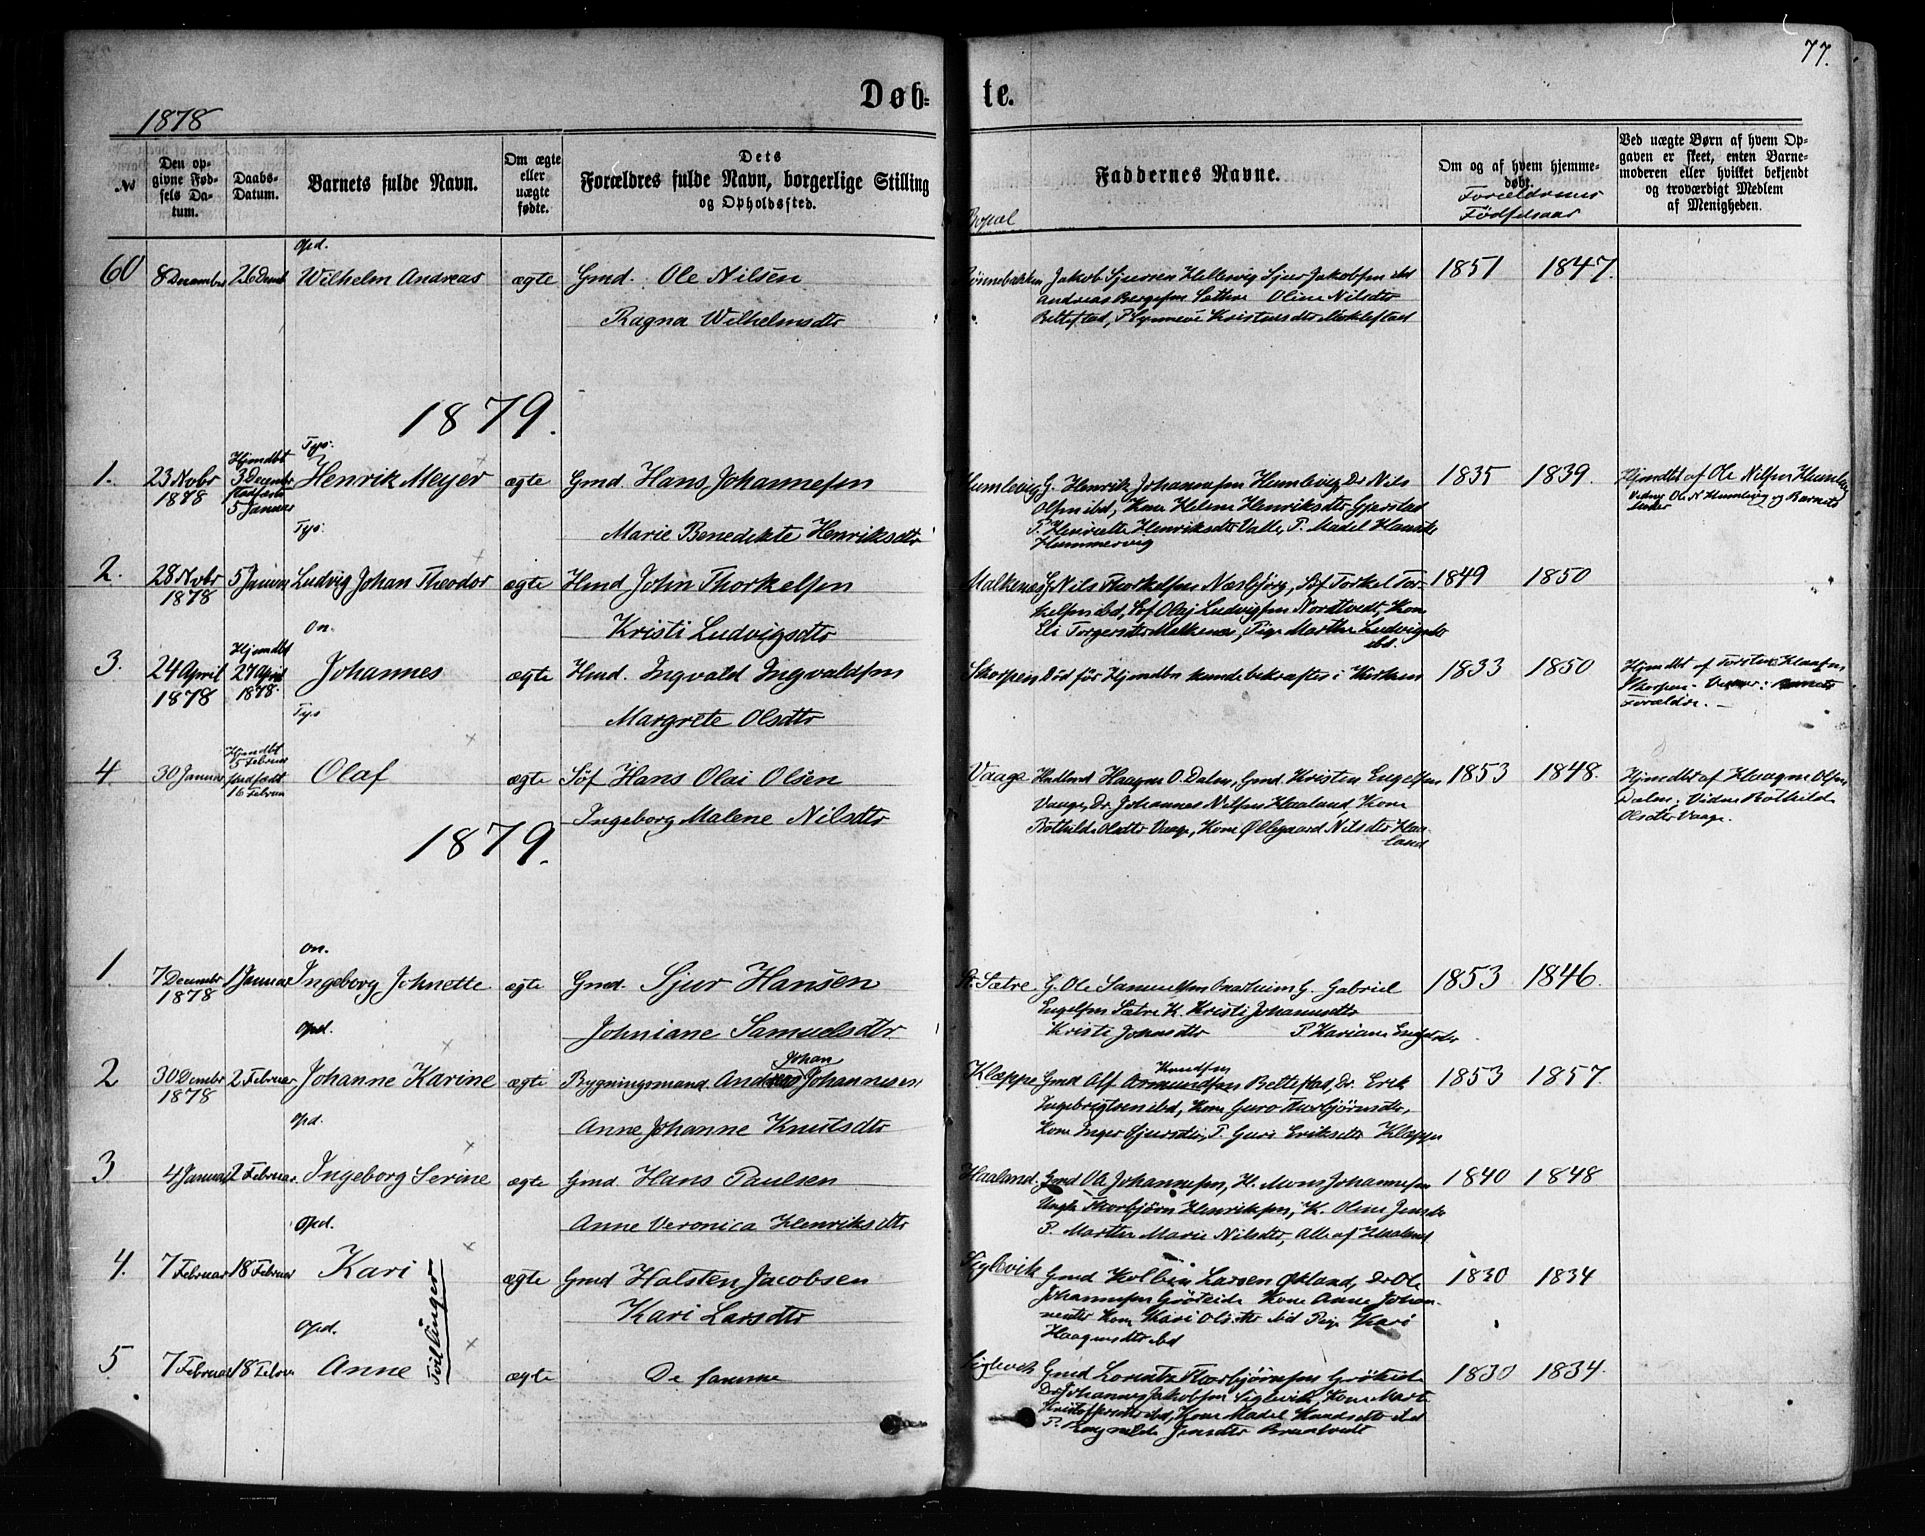 77.
Døb= te.
1878
No
Den op-
givne Fød-
sels Da-
tum.
Daabs-
Datum.
Barnets fulde Navn.
Om ægte
eller
uægte
fødte.
Dets
Forældres fulde Navn, borgerlige Stilling
og Opholdssted.
Bopæl
Faddernes Navne.
Om og af hvem hjemme-
døbt.
Forældrenes
Fødselsaar
Ved uægte Børn af hvem Op-
gaven er skeet, enten Barne-
moderen eller hvilket bekjendt
og troværdigt Medlem
af Menigheden.
Opd.
60 8 December 26 Decemb Wilhelm Andreas ægte Gmd. Ole Nilsen
Ragna Wilhelmsdtr
Jakob Sjursen Hellevig Sjur Jakobsen ibd
Andreas Bergesen Sethre Oline Nilsdtr
Beltestad, P Synneve Kristensdtr
1851 1847.
1879.
Tys:
1. 23 Novbr 1878
Hjmdbt
3 Decembr
stadfæstet
5 Januar
Henrik Meyer ægte Gmd. Hans Johannessen
Marie Benedikte Henriksdtr
Humlevig G. Henrik Johannessen Humlevig, Dr Nils
Olsen ibd, Kone Helene Henriksdtr Gjerstad
P. Henriette Henriksdtr Valle, P. Madel
Hummervig
1835 1839.
Hjmdbt af Ole Nilsen Humlevig
Vidner Ole N Humlevig og Barnets
Tys:
2. 28 Novbr 1878 5 Januar Ludvig Johan Theodor ægte Hmd John Thorkelsen
Kristi Ludvigsdtr
Malkenæs G. Nils Thorkelsen Næsbjørg, Søf Torkel Tor-
kelsen ibd, Søf Olai Ludvigsen Nordtvedt, Kone
Eli Torgersdtr Malkenæs, Pige Marthe Ludvigsdtr
ibd.
1849 1850
On.
3. 24 April 1878
Hjemdbt
27 April
1878.
Johannes ægte Hmd. Ingvald Ingvaldsen
Margrete Olsdtr
Skorpen Død før Hjmdbn kunde bekræftes i Kirken
1833 1850
Hjmdbt af Torsten
Skorpen
Forældre.
Tys
4. 30 Januar
Hjmdbt
5 Februar
stadfæst
16 Februar
Olaf ægte Søf Hans Olai Olsen
Ingeborg Malene Nilsdtr
Vaage Haagen O. Dalen, Gmd Kristen Engelsen
Vaage, Dr. Johannes Nilsen Haaland, Kone
Bothilde Olsdtr Vaage, Kone Øllegaard Nilsdtr Haa-
land
1853 1848.
Hjmdbt af Haagen Olsen
Dalen; Vidne Bothilde
Olsdtr Vaage.
1879.
On.
1 7 Decembr 1878 1 Januar Ingeborg Johnette ægte Gmd. Sjur Hansen
Johniane Samuelsdtr
St. Sætre G. Ole Samuelsen Onarheim G. Gabriel
Engelsen Sætre K. Kristi Johannesdtr
Kristi Johnsdtr P. Mariane Engelsdtr
1853 1846.
Opd.
2 30 Decembr 1878 2 Februar Johanne Karine ægte Bygningsmand Andreas Johan Johannesen
Anne Johanne Knutsdtr
Klæppe Gmd Alf Knudsen Asmundsen Beltestad, Dr. Erik
Ingebrigtsen ibd, Kone Guro Thorbjørnsdtr,
Kone Inger Sjursdtr, P. Guri Eriksdtr Klæppe
1853 1857.
Opd.
3 4 Januar 2 Februar Ingeborg Serine ægte Gmd. Hans Paulsen
Anne Veronica Henriksdtr
Haaland. Gmd Ole Johannessen, H. Mons Johannessen
Ungk Thorbjørn Henriksen, K. Oline Jensdtr
P. Marthe Marie Nilsdtr, Alle af Haaland
1840 1848
Opd.
4. 7 Februar 18 Februar Kari ægte Gmd Halsten Jacobsen
Kari Larsdtr
Tvillinger
Siglevik Gmd Kolbein Larsen Økland, Dr Ole
Johannessen Grøteide Kone Anne Johan-
nesdtr Kone Kari Olsdtr ibd Pige Kari
Haagensdtr ibd
1830 1834
Opd.
5 7 Februar 18 Februar Anne ægte De samme
Siglevik Gmd Lorentz Thorbjørnsen Grøteide
Dr. Johannes Jakobsen Siglevik, Kone Marte
Kristoffersdtr ibd, Kone Madel Knudsdtr ibd
P. Ragnilde Jensdtr
1830 1834.